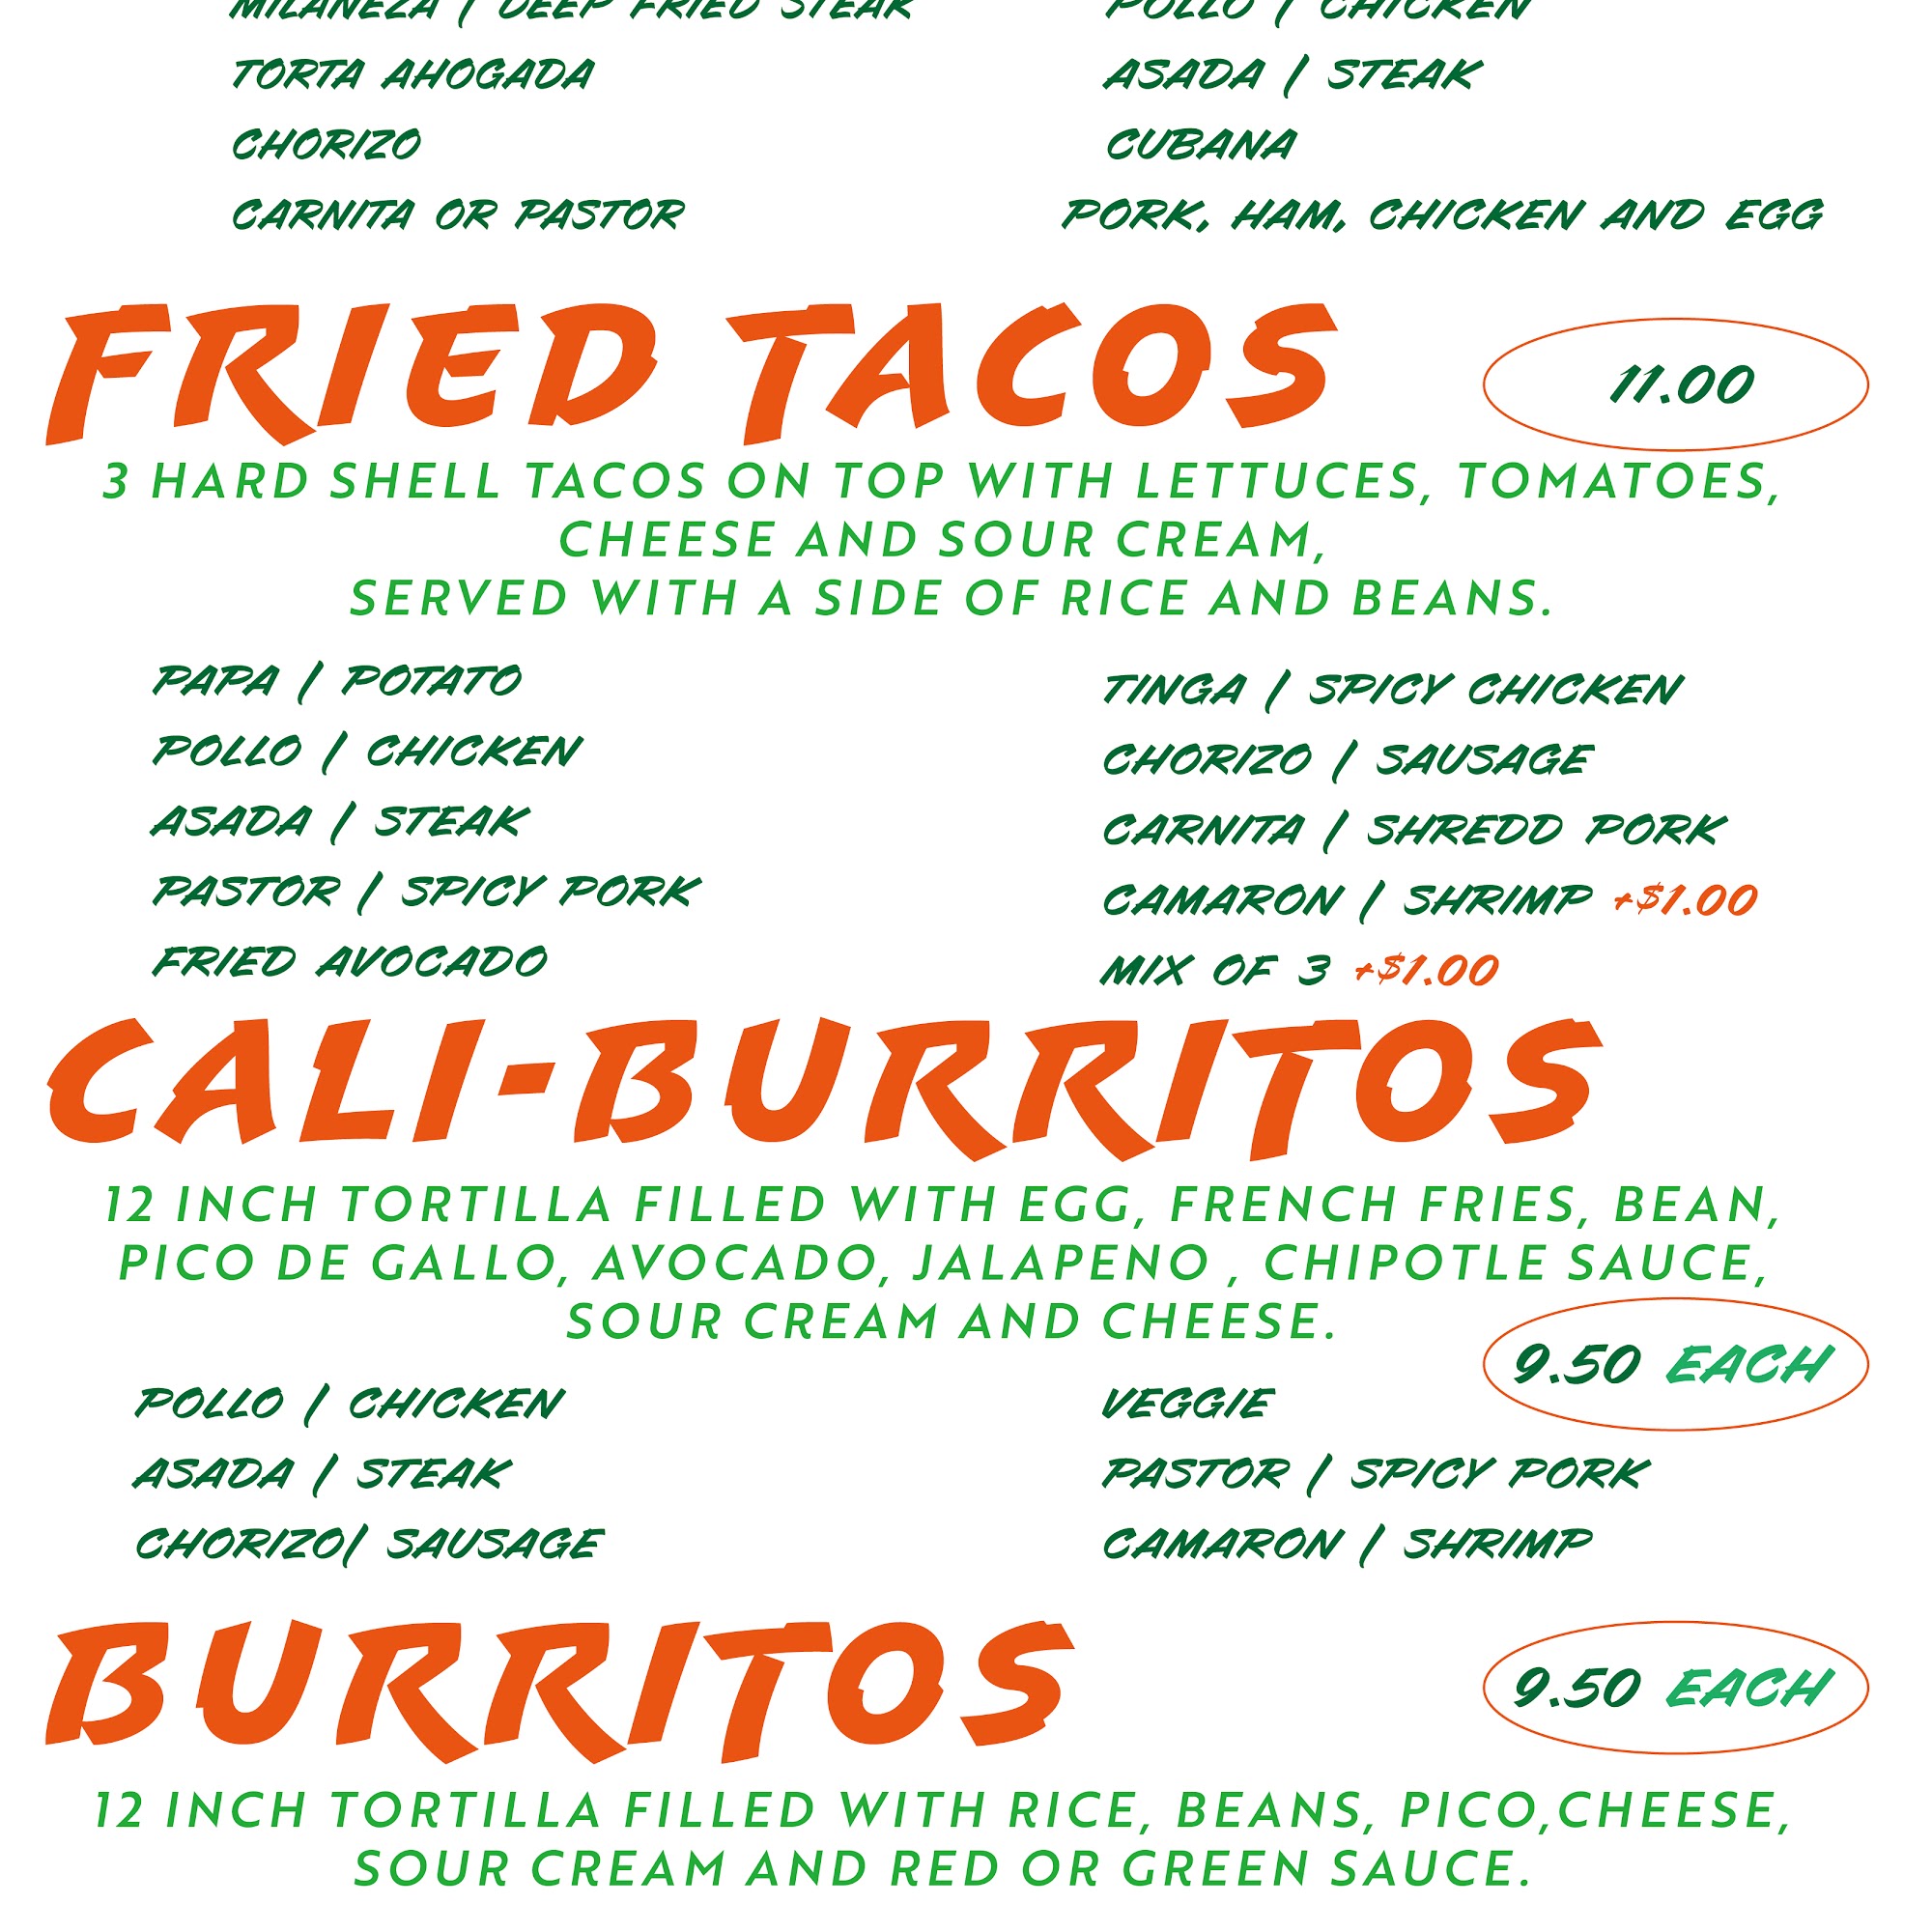 MILANEZA | DEEP FRIED STEAK
TORTA AHOGADA
CHORIZO
CARNITA OR PASTOR
POLLO | CHICKEN
ASADA | STEAK
CUBANA
PORK, HAM, CHICKEN AND EGG
FRIED TACOS
11.00
3 HARD SHELL TACOS ON TOP WITH LETTUCES, TOMATOES,
CHEESE AND SOUR CREAM,
SERVED WITH A SIDE OF RICE AND BEANS.
PAPA | POTATO
POLLO | CHICKEN
ASADA | STEAK
PASTOR | SPICY PORK
FRIED AVOCADO
TINGA | SPICY CHICKEN
CHORIZO | SAUSAGE
CARNITA | SHREDD PORK
CAMARON | SHRIMP +$1.00
MIX OF 3 +$1.00
CALI-BURRITOS
12 INCH TORTILLA FILLED WITH EGG, FRENCH FRIES, BEAN,
PICO DE GALLO, AVOCADO, JALAPENO , CHIPOTLE SAUCE,
SOUR CREAM AND CHEESE.
9.50 EACH
POLLO | CHICKEN
ASADA | STEAK
CHORIZO| SAUSAGE
VEGGIE
PASTOR | SPICY PORK
CAMARON | SHRIMP
BURRITOS
9.50 EACH
12 INCH TORTILLA FILLED WITH RICE, BEANS, PICO,CHEESE,
SOUR CREAM AND RED OR GREEN SAUCE.